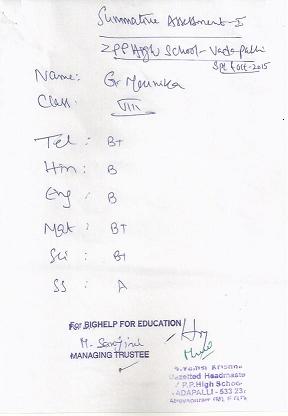 Summative Assessment-I
ZPP High School- Vadapalli
Spt/Oct-2015
Name: G Mounika
Class: VIII
Tel : B+
Hin : B
Eng : B
Mat : B+
Sci : B+
SS : A
For BIGHELP FOR EDUCATION
M. Sarojini
MANAGING TRUSTEE
Gazetted Headmaste
Z.P.P.High School
VADAPALLI - 533 23